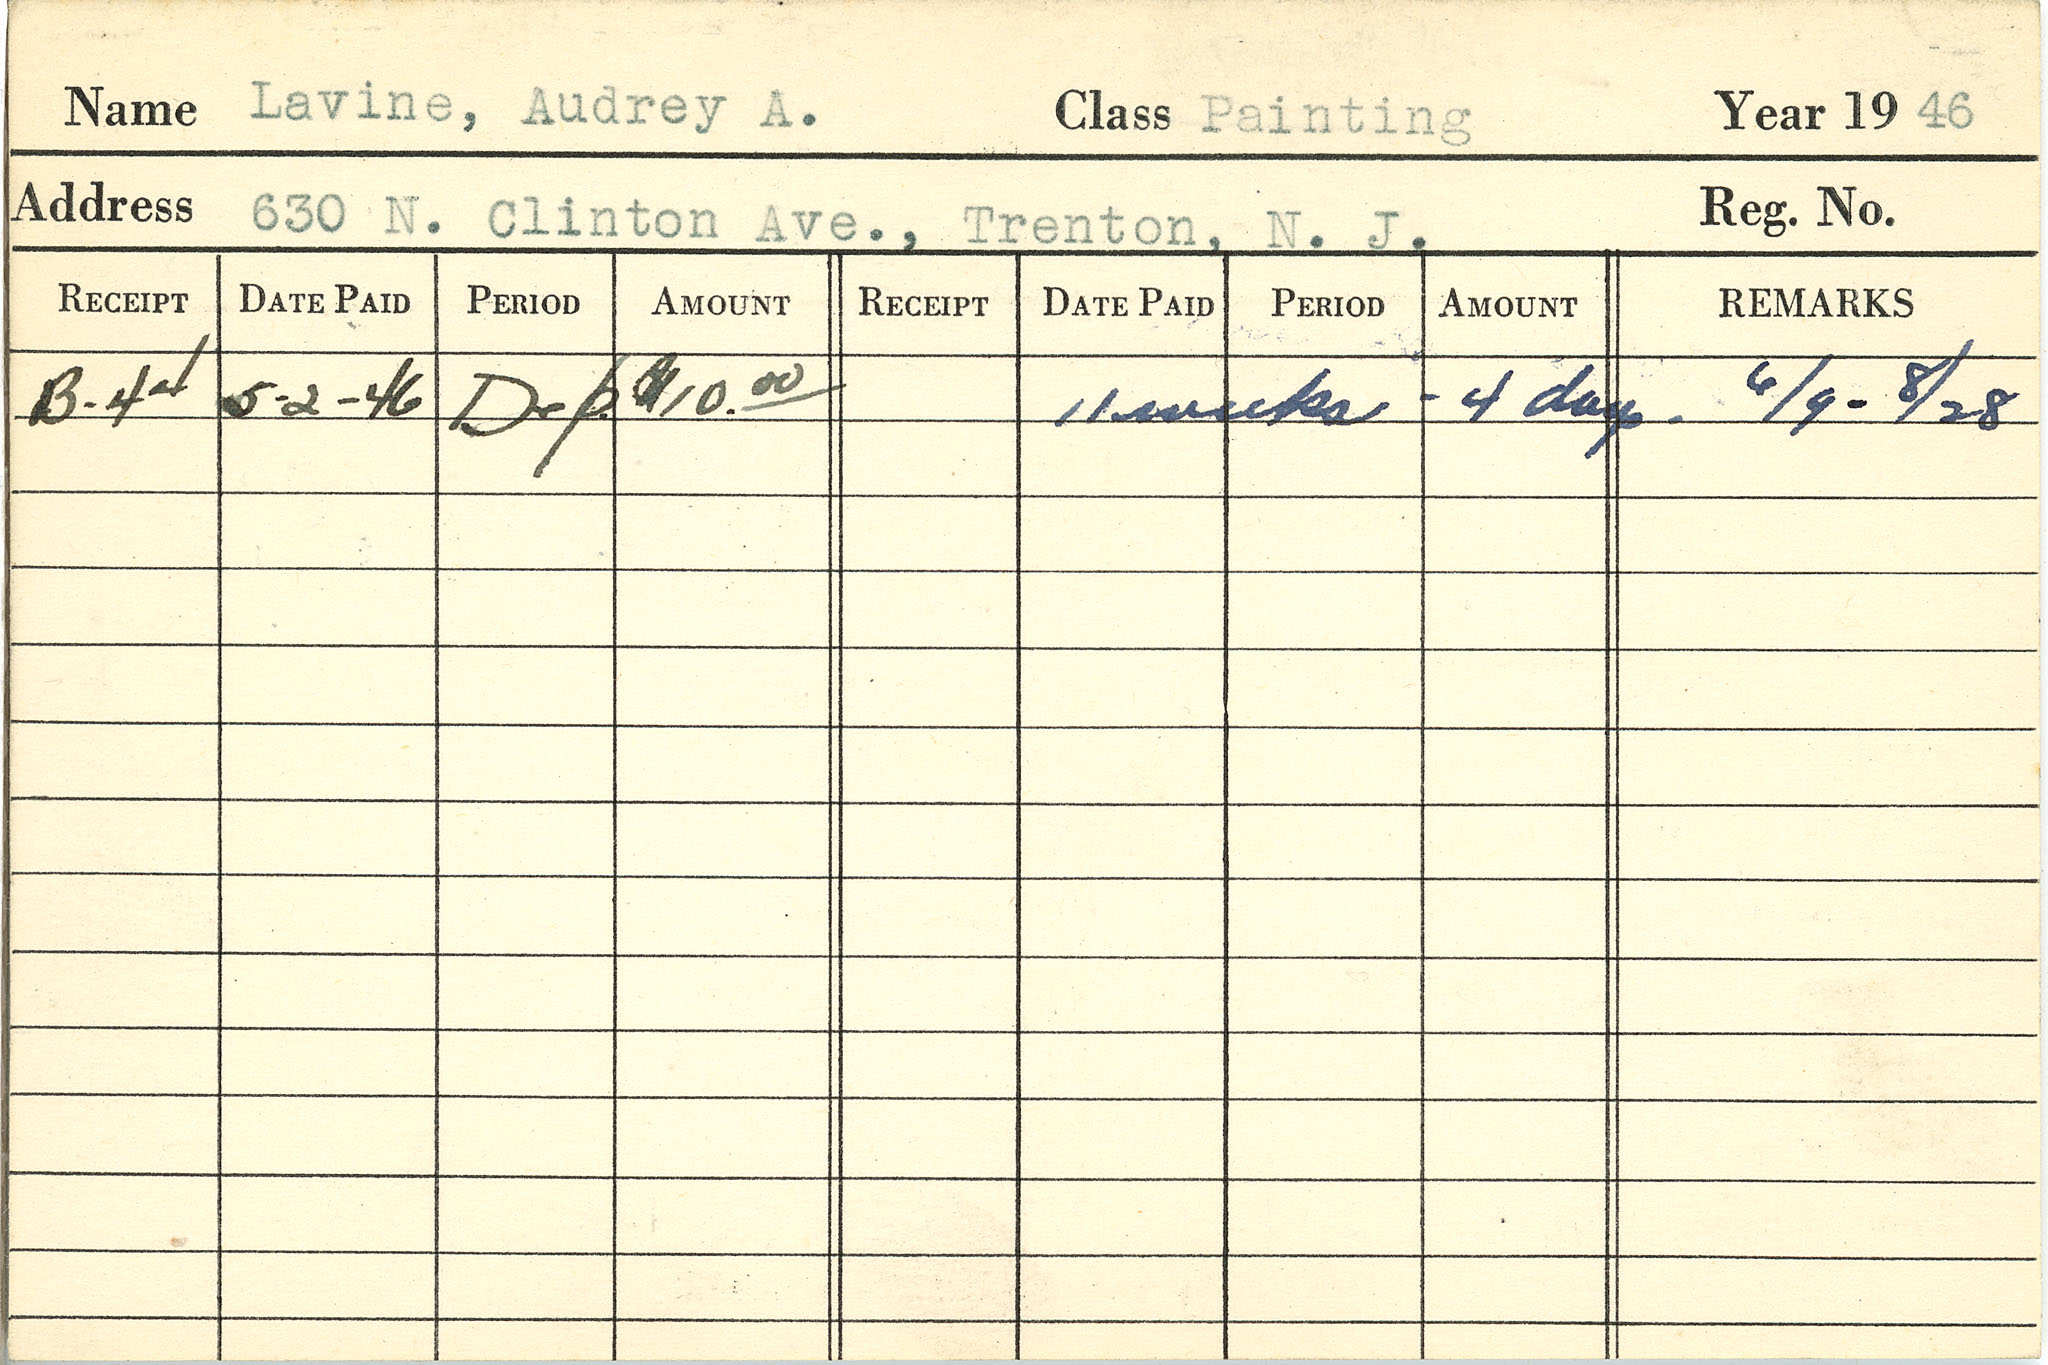 Name Lavine, Audrey A. Class Painting Year 19 46
Address 630 N. Clinton Ave., Trenton, N. J. Reg. No.
RECEIPT DATE PAID PERIOD AMOUNT RECEIPT DATE PAID PERIOD AMOUNT REMARKS
5-2-46 Dep. $10.00 11 weeks - 4 days. 6/9 - 8/28